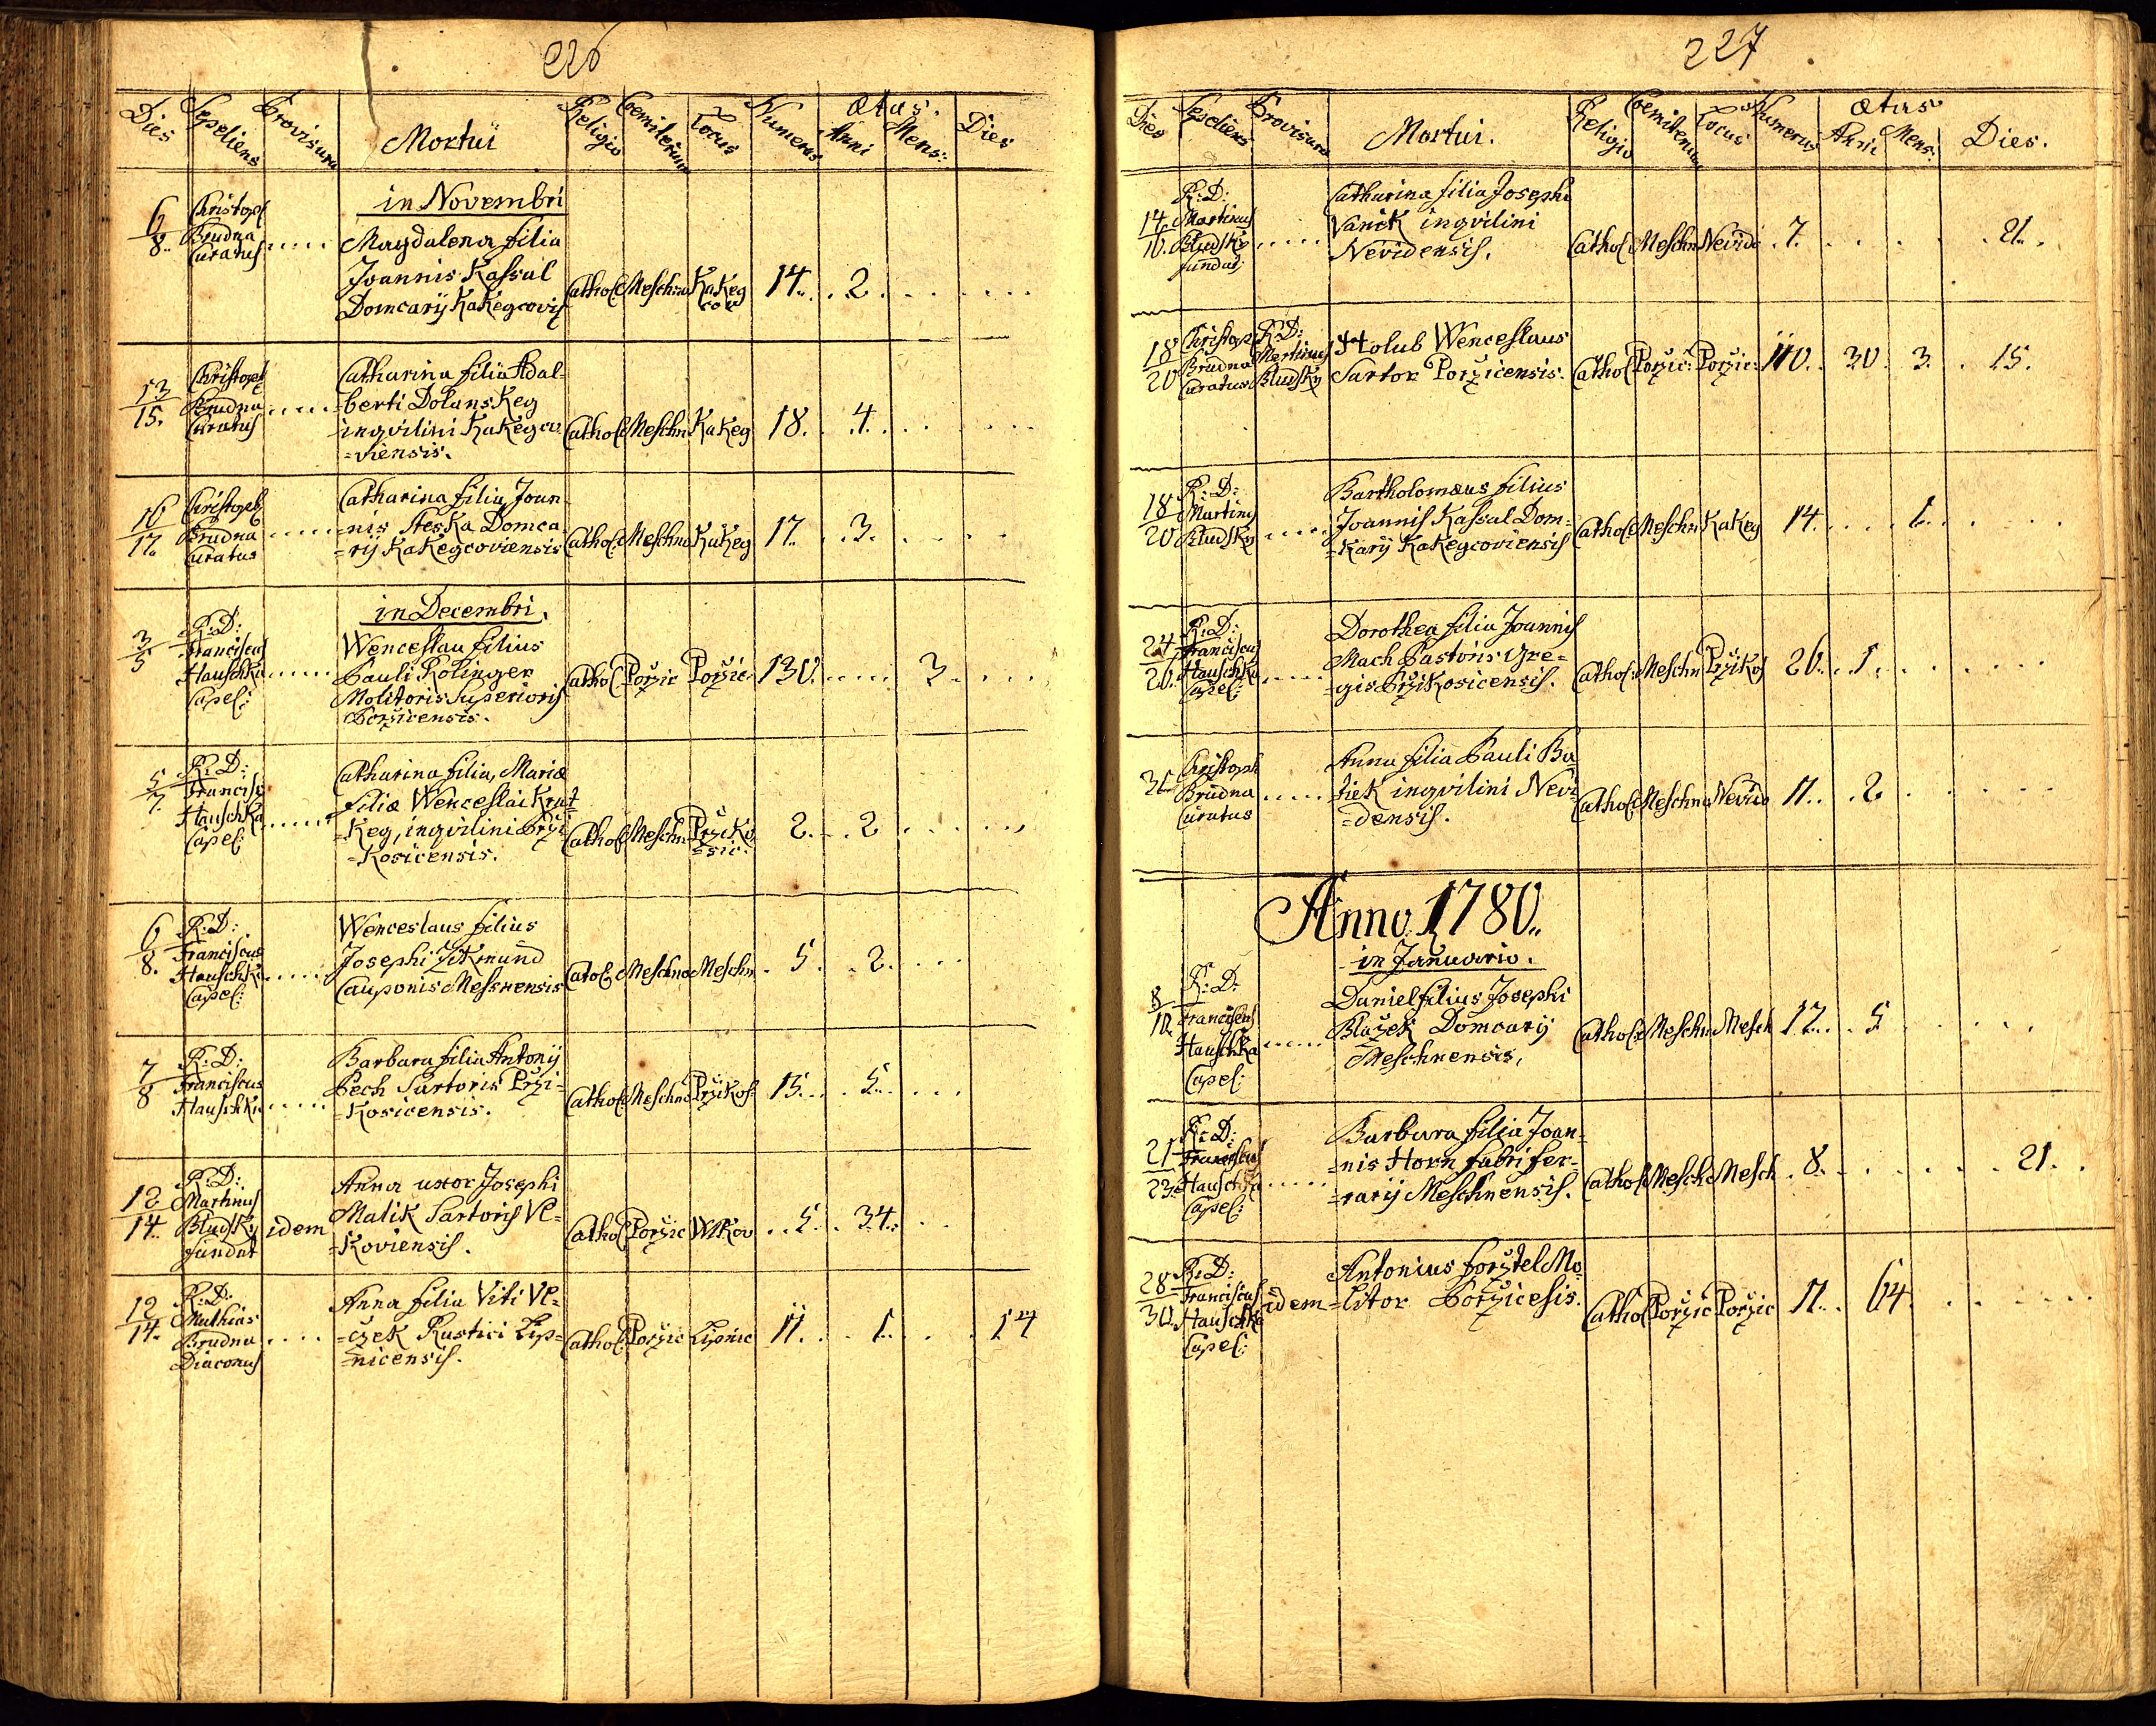 226
Dies Sepeliens Provisura Mortui Religio Cemiterium Locus Numerus Ætas: Anni Mens: Dies
in Novembri
6/8. Christoph Brudna Curatus ..... Magdalena filia
Joannis Kassal
Domcarij Kakegcovis Cathol Meschn Kakeg cov 14. . 2. . . .
13/15. Christoph Brudna Curatus ..... Catharina filia Adal-
berti Dolanskeg
inqvilini Kakegco
=viensis. Cathol Meschn Kakeg 18. . 4. . . .
16/17. Christoph Brudna Curatus ..... Catharina filia Joan
=nis Steska Domca
=rij Kakegcoviensis Cathol Meschno Kakeg 17. . 3. . . .
in Decembri.
3/5 R: D: Franciscus Hauschka Capel: ..... Wenceslau filius
Pauli Polinger
Molitoris Superioris
Porzicensis. Cathol Porzic Porzic 130. .... 3. . . .
5/7. R: D: Francis Hauschka Capel: ..... Catharina filia, Mariæ
filiæ Wenceslai Krat
=keg, inqvilini Przi
=kosicensis. Cathol Meschn Prziko =sic: 2. . 2 . . . .
6/8. R: D: Franciscus Hauschka Capel: ..... Wenceslaus filius
Josephi Zikmund
Cauponis Mesnensis Catol Meschno Meschn . 5. . 2. . . .
7/8 R: D: Franciscus Hauschka ..... Barbara filia Antonij
Pech Sartoris Przi-
=kosicensis. Cathol Meschno Przikos 15. . . 5. . . .
12/14. R: D: Martinus Bludsky fundat idem Anna uxor Josephi
Malik Sartoris Vl-
=koviensis. Cathol Porzic Wlkov . . 5. . 34. . .
12/14. R: D: Mathias Brudna Diaconus .... Anna filia Viti Vl-
=czek Rustici Lip-
=nicensis. Cathol Porzic Lipnic 11. . . 1. . . . 14
227
Dies Sepeliens Provisura Mortui. Religio Cemiterium Locus Numerus Ætas Anni Mens: Dies.
14/16. R: D: Martinus Bludsky fundat: ..... Catharina filia Josephi
Vanick inqvilini
Nevidensis. Cathol Meschn Nevido . 7. . . . . 21. .
18/20 Christoph Brudna Curatus R: D: Martinus Bludsky Holub Wenceslaus
Sartor Porzicensis. Cathol Porzic: Porzic: 110. . 30. 3. . 15.
18/20 R: D: Martinus Bludsky ..... Bartholomæus filius
Joannis Kassal Dom-
=karij Kakegcoviensis Cathol Meschn Kakeg 14. . . . 1. . . .
24/26. R: D: Franciscus Hauschka Capel: ..... Dorothea filia Joannis
Mach Pastoris Gre-
=gis Przikosicensis. Cathol: Meschn Przikos 26. . 1. . . .
31. Christoph Brudna Curatus ..... Anna filia Pauli Ba
=tiek inqvilini Nevi
=densis. Cathol Meschno Nevido 11. . 2 . . . .
Anno 1780.
in Januario.
8/10. R: D: Franciscus Hauschka Capel: ..... Daniel filius Josephi
Blazek Domcarij
Meschnensis, Cathol: Meschn Mesch 12. . 5 . . . .
21/23. R: D: Franciscus Hauschka Capel: ..... Barbara filia Joan-
=nis Horn fabri fer-
=rarij Meschnensis. Cathol Mesch Mesch . 8. . . . . 21. .
28/30. R: D: Franciscus Hauschka Capel: idem Antonius forztel Mo
=litor Porzicesis. Cathol Porzic Porzic 11. . 64. . . .